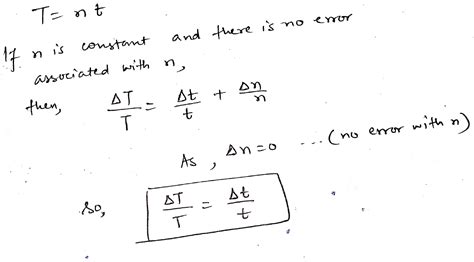 T = nt
If n is constant and there is no error
associated with n,
then, ΔT/T = Δt/t + Δn/n
As, Δn = 0 ...(no error with n)
so, ΔT/T = Δt/t